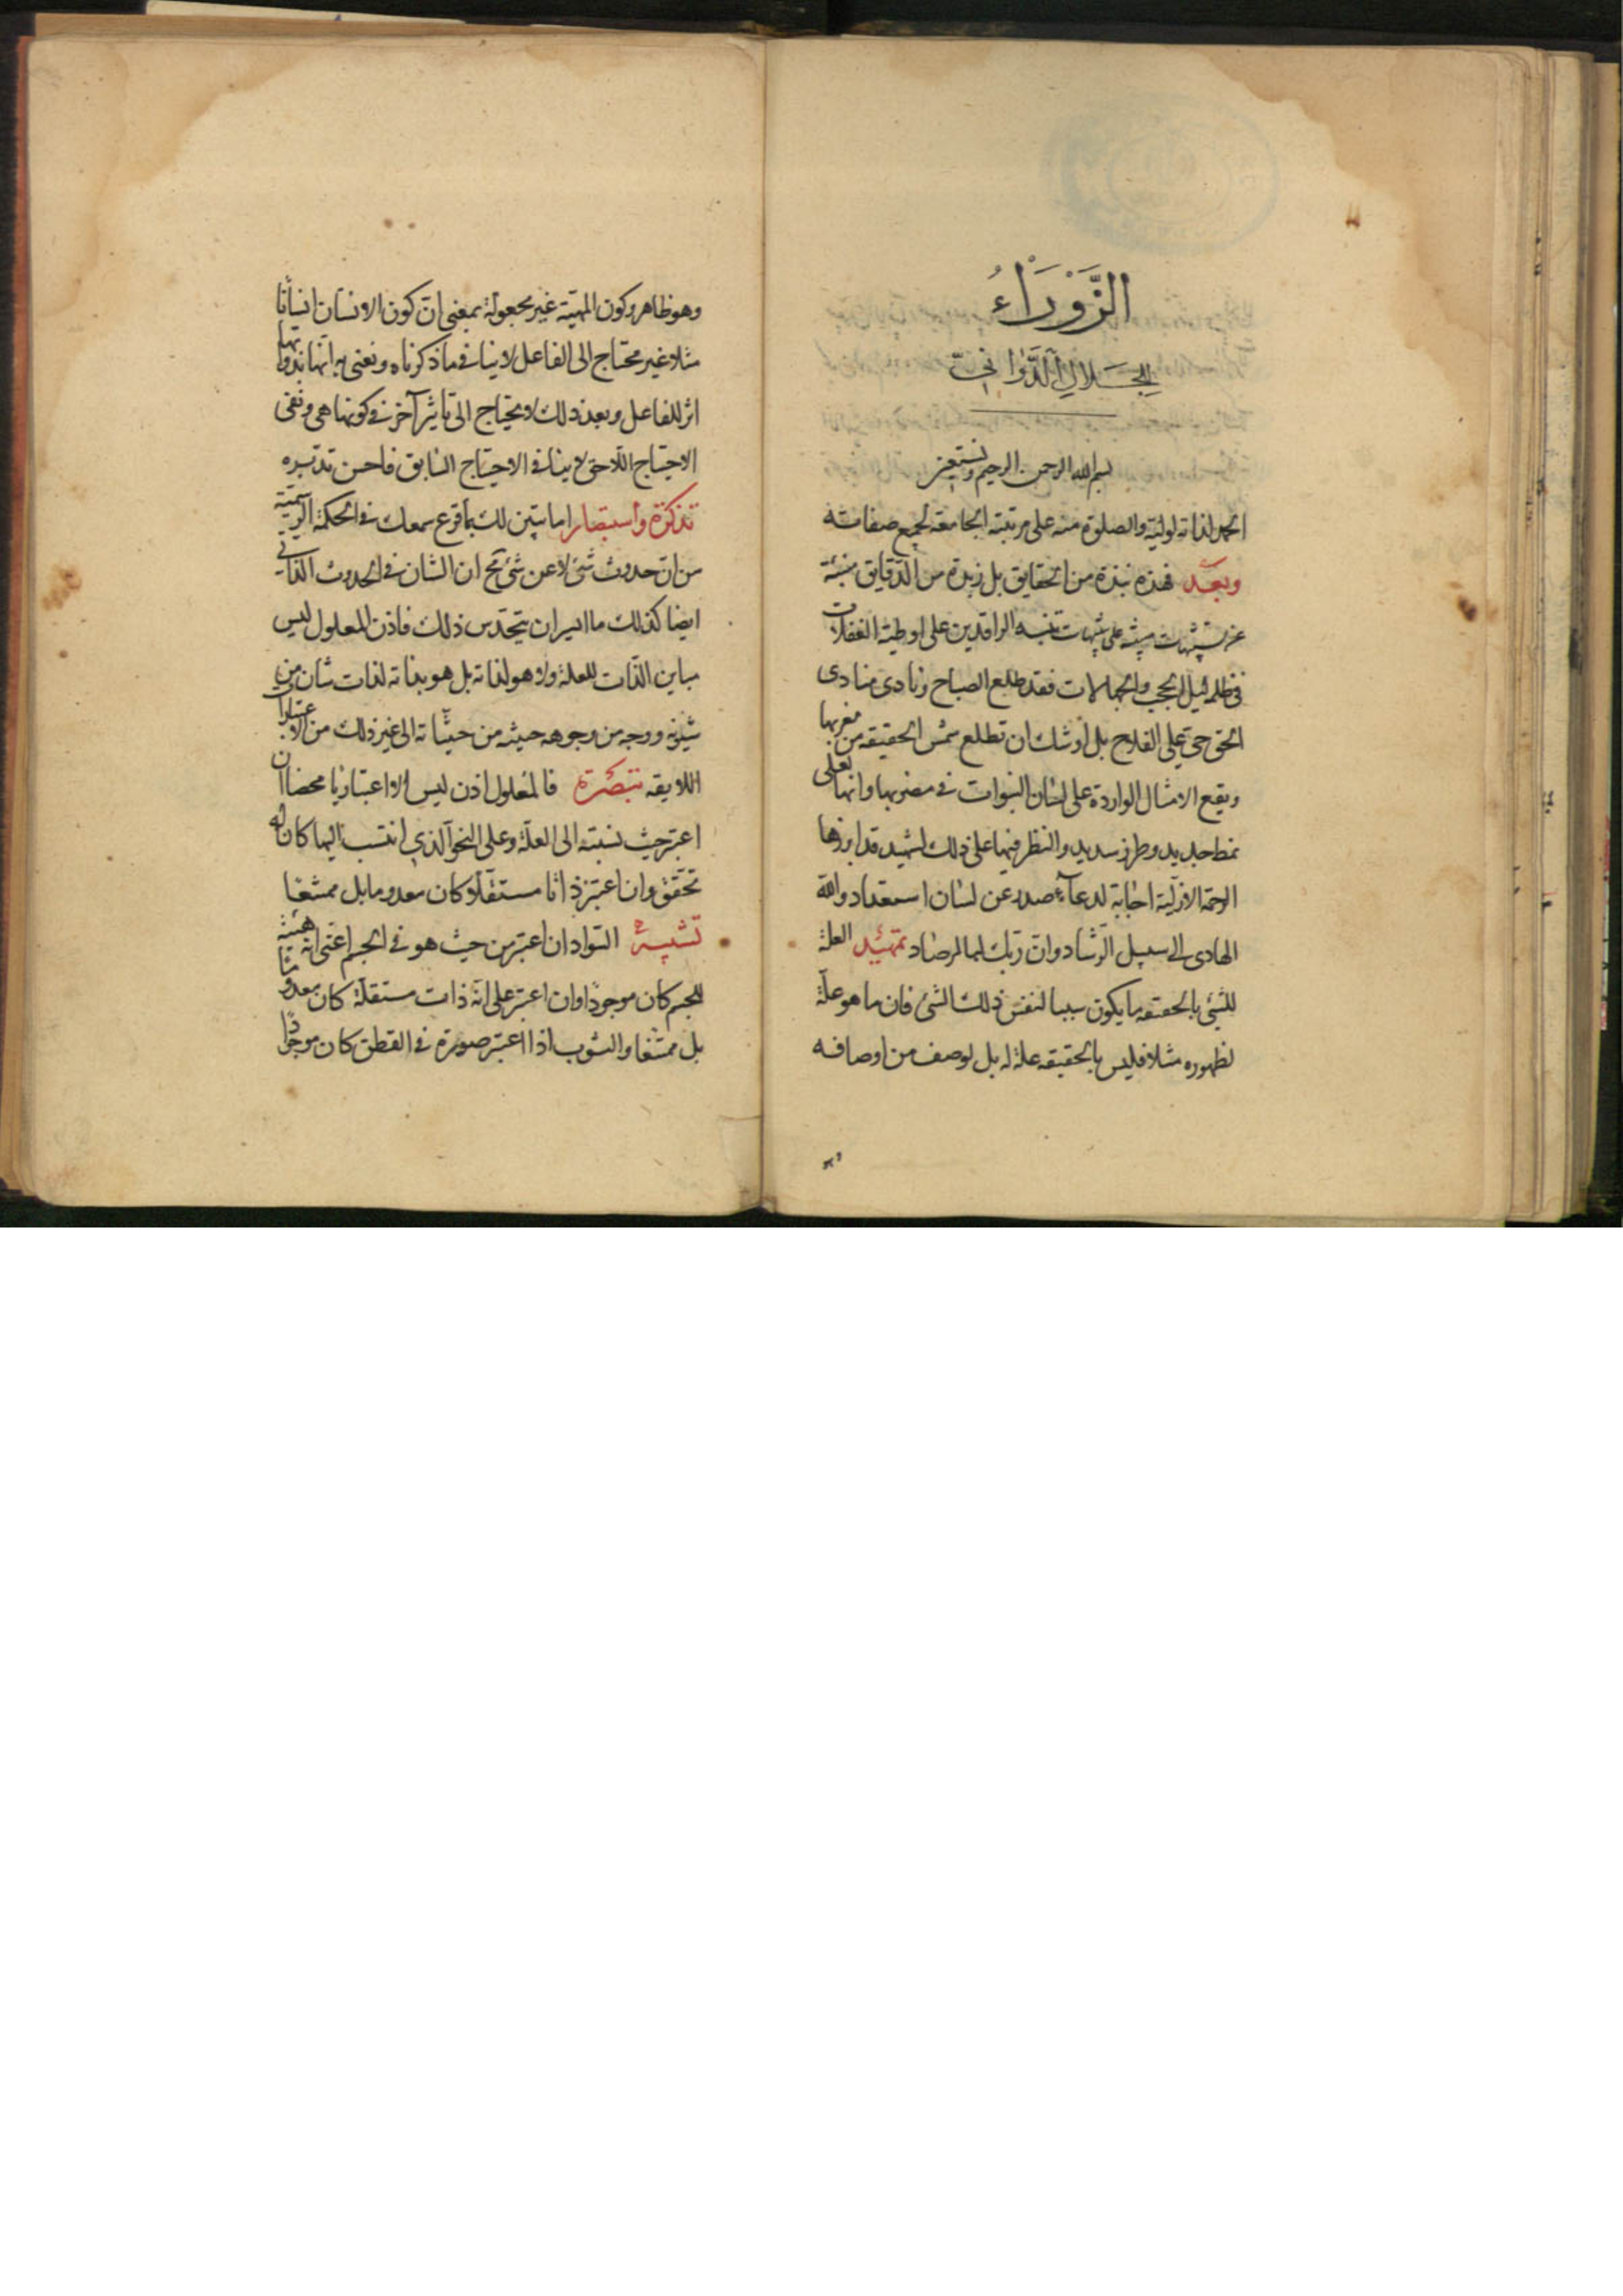 الزَّوْرَاءُ
للجلال الدَّوَّانيّ
بسم الله الرحمن الرحيم ونستعين
الحمد لذاته لوليه والصلوة منه على مرتبته الجامعة لجميع صفاته
وبعد فهذه نبذة من الحقايق بل زبدة من الدّقايق منبئة
على تنبه الراقدين على اوطية الغفلات
في ظلم ليل الحجب والجهالات فقد طلع الصباح ونادى منادى
الحق حي على الفلاح بل اوشك ان تطلع شمس الحقيقه من مغربها
ويقع الامثال الواردة على لسان النبوات في مضربها وانها لعلى
نمط جديد وطرز سديد والنظر فيها على ذلك لشهيد قد ابرزها
الرحمة الازليّة اجابة لدعآء صدر عن لسان استعداد والله
الهادى الى سبيل الرّشاد وانّ ربّك لبالمرصاد تمهيد العلة
للشئ بالحقيقه ما يكون سببا لنفس ذلك الشئ فان ما هو علّة
لظهوره مثلا فليس بالحقيقه علة له بل لوصف من اوصافه
وهو ظاهر وكون المهيّة غير مجعولة بمعنى انّ كون الانسان انسانا
مثلا غير محتاج الى الفاعل لا ينافى ما ذكرناه ونعنى به انّها بذواتها
اثر للفاعل وبعد ذلك لا يحتاج الى تاثير آخر في كونها هى ونفى
الاحتياج اللّاحق لا ينافى الاحتياج السابق فاحسن تدبره
تذكرة واستبصار اما تبين لك بما قرع سمعك في الحكمة الرّسميّة
من انّ حدوث شئ لا عن شئ مح ان الشان في الحدوث الذّاتي
ايضا كذلك ما ايسر ان يتحدّس ذلك فاذن المعلول ليس
مباين الذّات للعلة ولا هو لذاته بل هو بذاته لذات شان من
شئونه ووجه من وجوهه حيثه من حيثياته الى غير ذلك من الاعتبارات
اللايقه تبصرة فالمعلول اذن ليس الا اعتباريا محضا ان
اعتبر حيث نسبته الى العلّة وعلى النحو الّذي انتسب اليها كان له
تحقّق وان اعتبر ذاتا مستقلّا كان معدوما بل ممتنعا
تشبيه السّواد ان اعتبر من حيث هو في الجسم اعنى انه هيئة
للجسم كان موجودًا وان اعتبر على انّه ذات مستقلّة كان معدومًا
بل ممتنعا والثوب اذا اعتبر صورة في القطن كان موجودًا